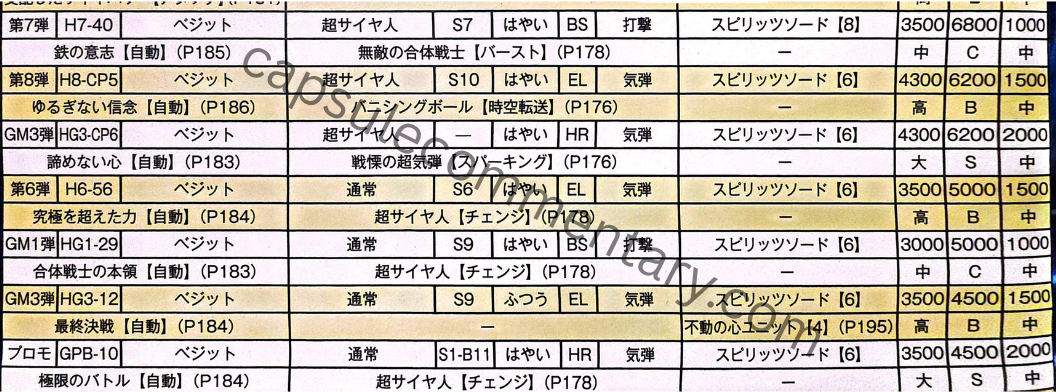 第7弾 H7-40 ベジット 超サイヤ人 S7 はやい BS 打撃 スピリッツソード【8】 3500 6800 1000
鉄の意志【自動】(P185) 無敵の合体戦士【バースト】(P178) ー 中 C 中
第8弾 H8-CP5 ベジット 超サイヤ人 S10 はやい EL 気弾 スピリッツソード【6】 4300 6200 1500
ゆるぎない信念【自動】(P186) バニシングボール【時空転送】(P176) ー 高 B 中
GM3弾 HG3-CP6 ベジット 超サイヤ人 ― はやい HR 気弾 スピリッツソード【6】 4300 6200 2000
諦めない心【自動】(P183) 戦慄の超気弾【スパーキング】(P176) ー 大 S 中
第6弾 H6-56 ベジット 通常 S6 はやい EL 気弾 スピリッツソード【6】 3500 5000 1500
究極を超えた力【自動】(P184) 超サイヤ人【チェンジ】(P178) ー 高 B 中
GM1弾 HG1-29 ベジット 通常 S9 はやい BS 打撃 スピリッツソード【6】 3000 5000 1000
合体戦士の本領【自動】(P183) 超サイヤ人【チェンジ】(P178) ー 中 C 中
GM3弾 HG3-12 ベジット 通常 S9 ふつう EL 気弾 スピリッツソード【6】 3500 4500 1500
最終決戦【自動】(P184) ー 不動の心ユニット【4】(P195) 高 B 中
プロモ GPB-10 ベジット 通常 S1-B11 はやい HR 気弾 スピリッツソード【6】 3500 4500 2000
極限のバトル【自動】(P184) 超サイヤ人【チェンジ】(P178) ー 大 S 中
capsulecommentary.com